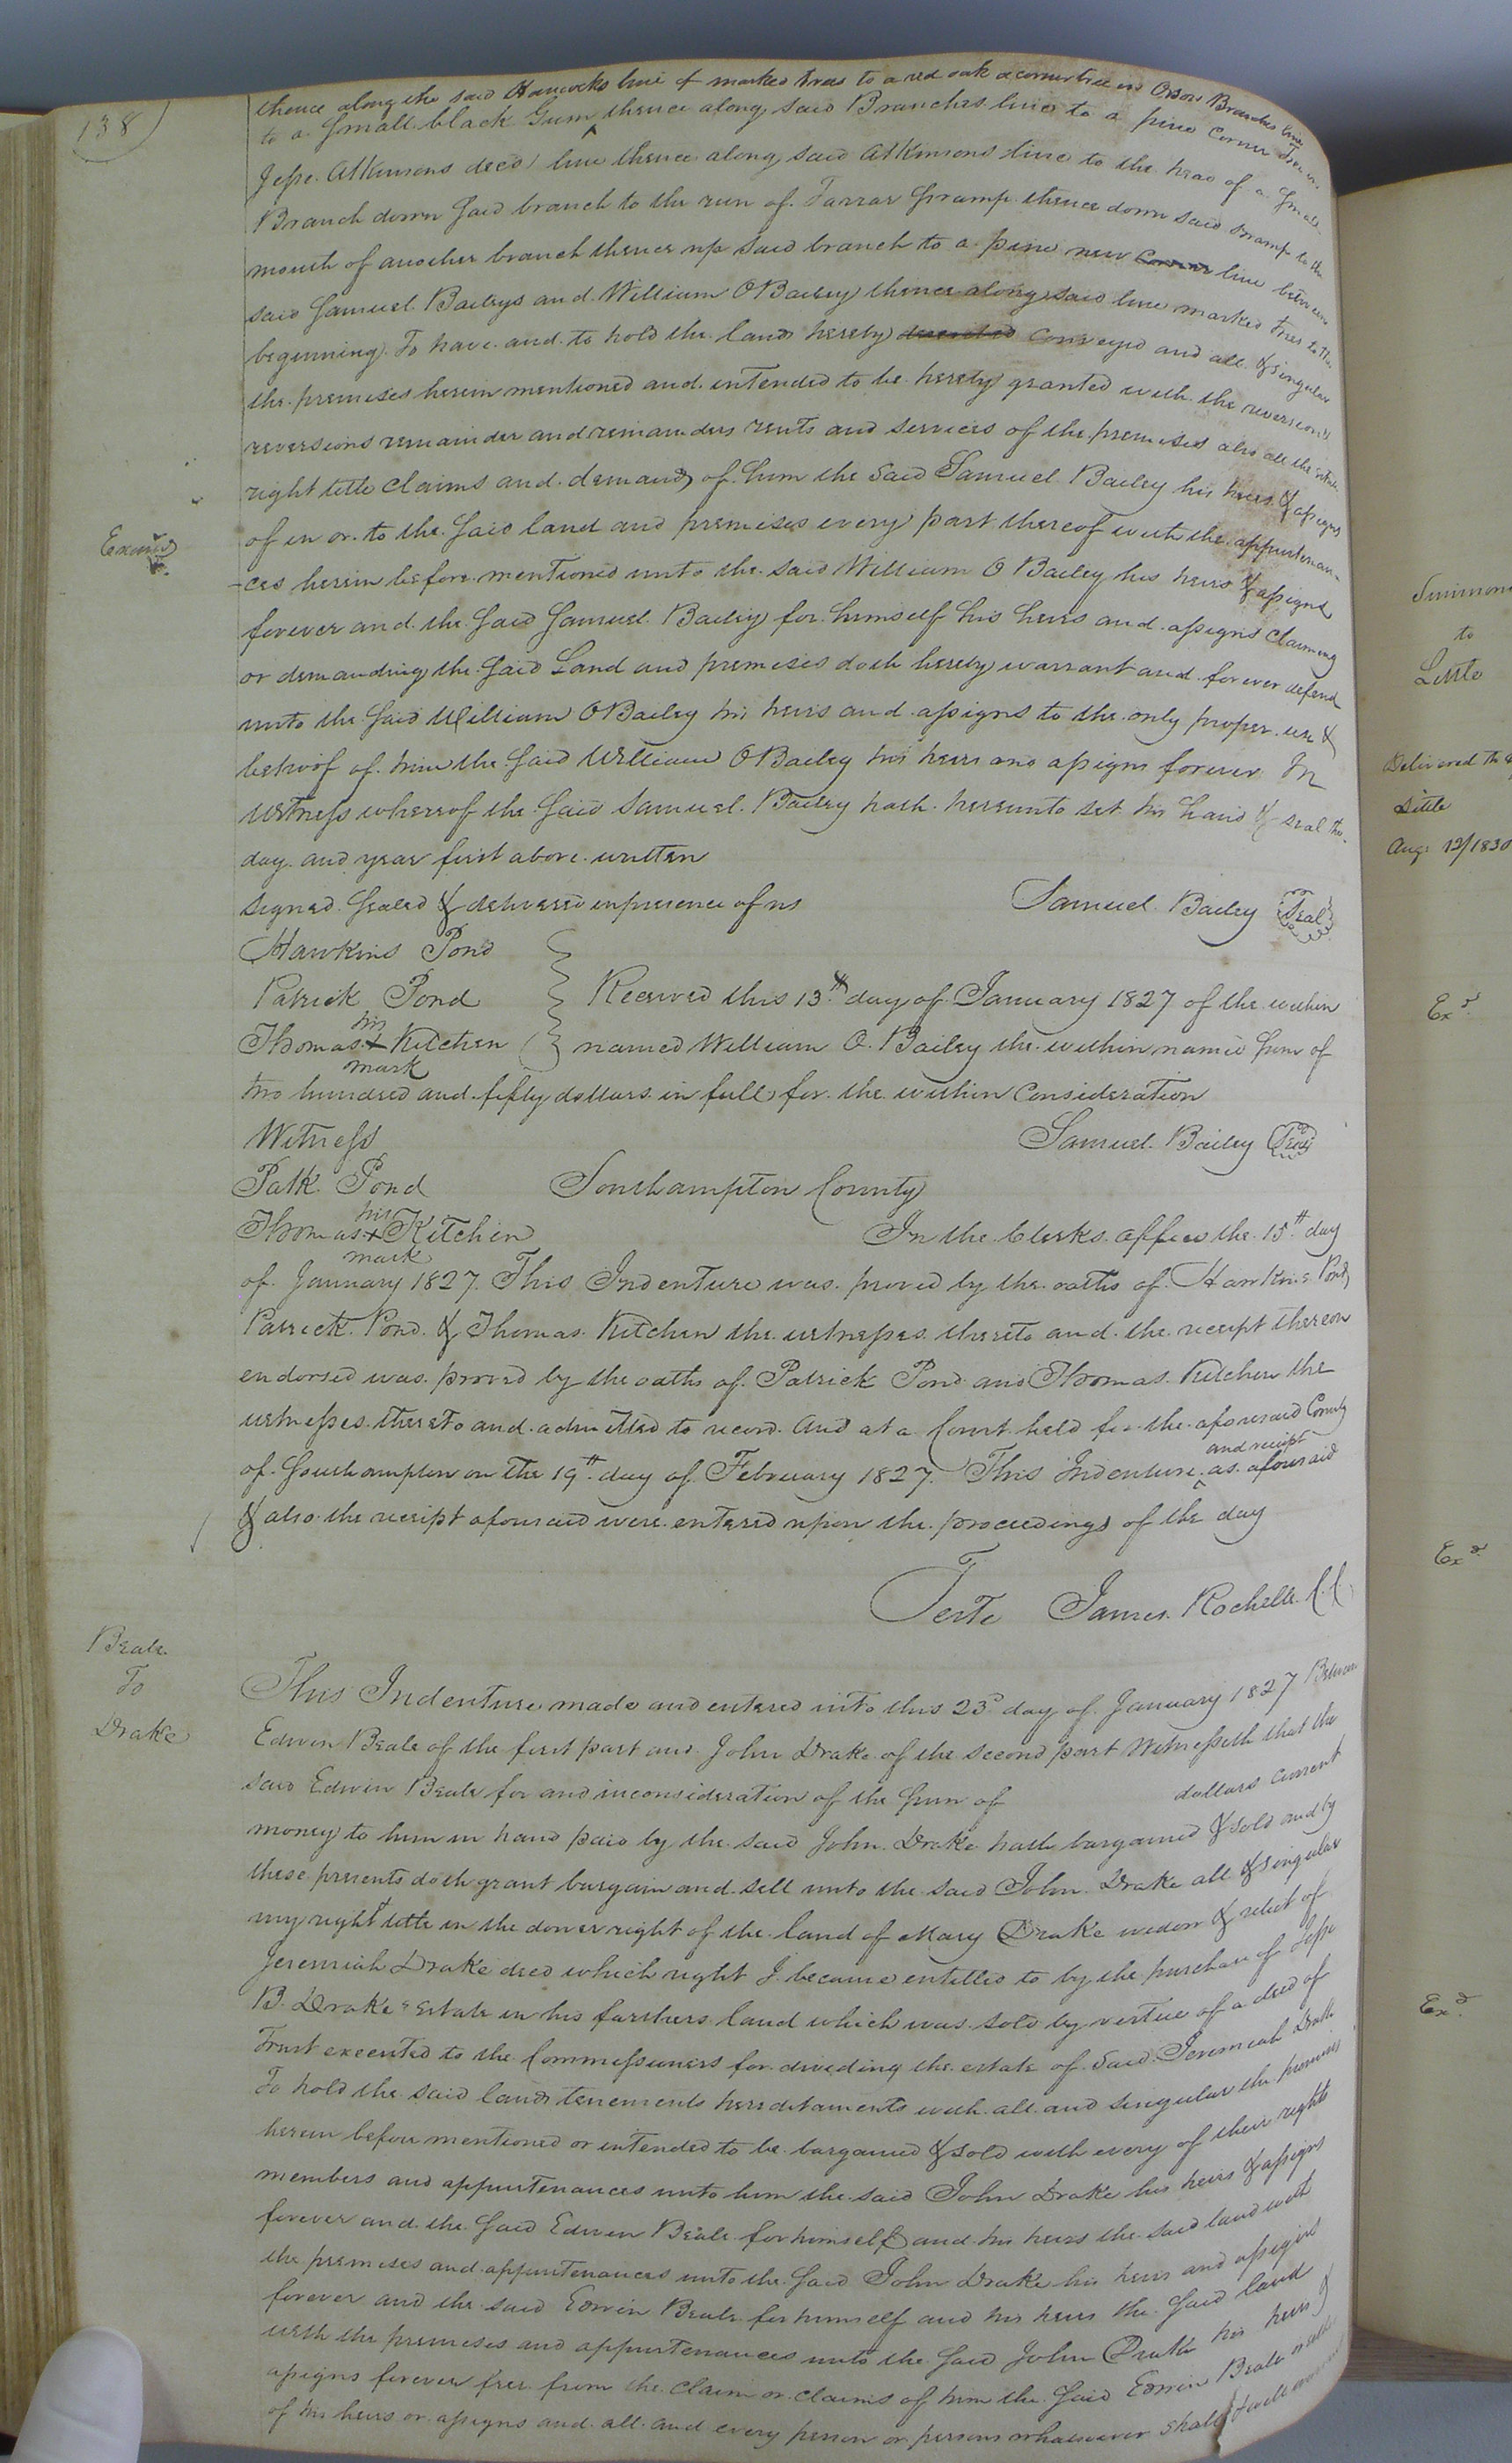 138
thence along the said Hancocks line of marked trees to a red oak a corner tree in Orson Branches line
to a small black Gum thence along said Branches line to a pine corner tree in
Jesse Atkinsons decd line thence along said Atkinsons line to the head of a small
Branch down said branch to the run of Tarrar swamp thence down said swamp to the
mouth of another branch thence up said branch to a pine new corner line between
said Samuel Baileys and William O Bailey thence along said line marked trees to the
beginning. To have and to hold the lands hereby conveyed and all & singular
the premises herein mentioned and intended to be hereby granted with the reversion &
reversions remainder and remainders rents and services of the premises also all the estate
right title claims and demands of him the said Samuel Bailey his heirs & assigns
of in or to the said land and premises every part thereof with the appurtenan-
-ces herein before mentioned unto the said William O Bailey his heirs & assigns
Examd
forever and the said Samuel Bailey for himself his heirs and assigns claiming
or demanding the said Land and premises doth hereby warrant and forever defend
unto the said William O Bailey his heirs and assigns to the only proper use &
behoof of him the said William O Bailey his heirs and assigns forever In
Witness whereof the said Samuel Bailey hath hereunto set his hand & seal the
day and year first above written
signed sealed & delivered in presence of us Samuel Bailey Seal
Hawkins Pond
Patrick Pond Received this 13th day of January 1827 of the within
his
Thomas + Kitchen named William O. Bailey the within named sum of
mark
two hundred and fifty dollars in full for the within Consideration
Witness Samuel Bailey Seal
Patk. Pond Southampton County
his
Thomas + Kitchen In the Clerks office the 15th day
mark
of January 1827. This Indenture was proved by the oaths of Hawkins Pond,
Patrick Pond & Thomas Kitchen the witnesses thereto and the receipt thereon
endorsed was proved by the oaths of Patrick Pond and Thomas Kitchen the
witnesses thereto and admitted to record. And at a Court held for the aforesaid County
and receipt
of Southampton on the 19th day of February 1827. This Indenture ^ as aforesaid
& also the receipt aforesaid were entered upon the proceedings of the day
Teste James Rochelle CC
Beale
To
Drake
This Indenture made and entered into this 23d day of January 1827 Between
Edwin Beale of the first part and John Drake of the second part Witnesseth that the
said Edwin Beale for and in consideration of the sum of dollars current
money to him in hand paid by the said John Drake hath bargained & sold and by
these presents doth grant bargain and sell unto the said John Drake all & singular
my right & title in the dower right of the land of Mary Drake widow & relict of
Jeremiah Drake decd which right I became entitled to by the purchase of Jesse
B. Drake's Estate in his farthers land which was sold by vertue of a deed of
Trust executed to the Commissioners for dividing the estate of said Jeremiah Drake
To hold the said lands tenements hereditaments with all and singular the premises
herein before mentioned or intended to be bargained & sold with every of their rights
members and appurtenances unto him the said John Drake his heirs & assigns
forever and the said Edwin Beale for himself and his heirs the said land with
the premises and appurtenances unto the said John Drake his heirs and assigns
forever and the said Edwin Beale for himself and his heirs the said land
with the premises and appurtenances unto the said John Drake his heirs &
assigns forever free from the claim or claims of him the said Edwin Beale
of his heirs or assigns and all and every person or persons whatsoever shall
Simmons
to
Little
Delivered to
Little
Aug: 12/1830
Exd
Exd
Exd